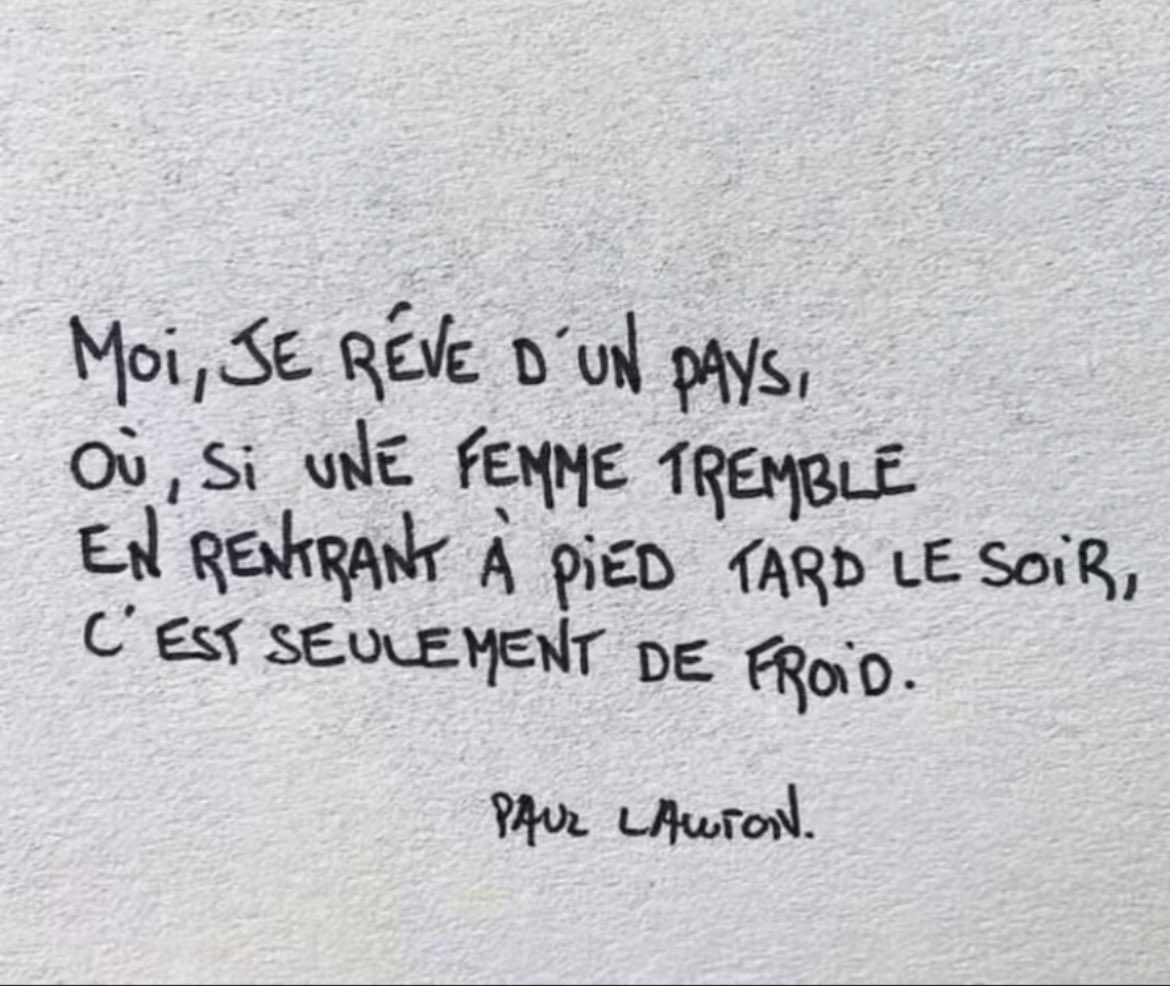 Moi, JE RÊVE D'UN PAYS,
OÙ, Si UNE FEMME TREMBLE
EN RENTRANT À PiED TARD LE SOiR,
C'EST SEULEMENT DE FROiD.
PAUL LAWTON.